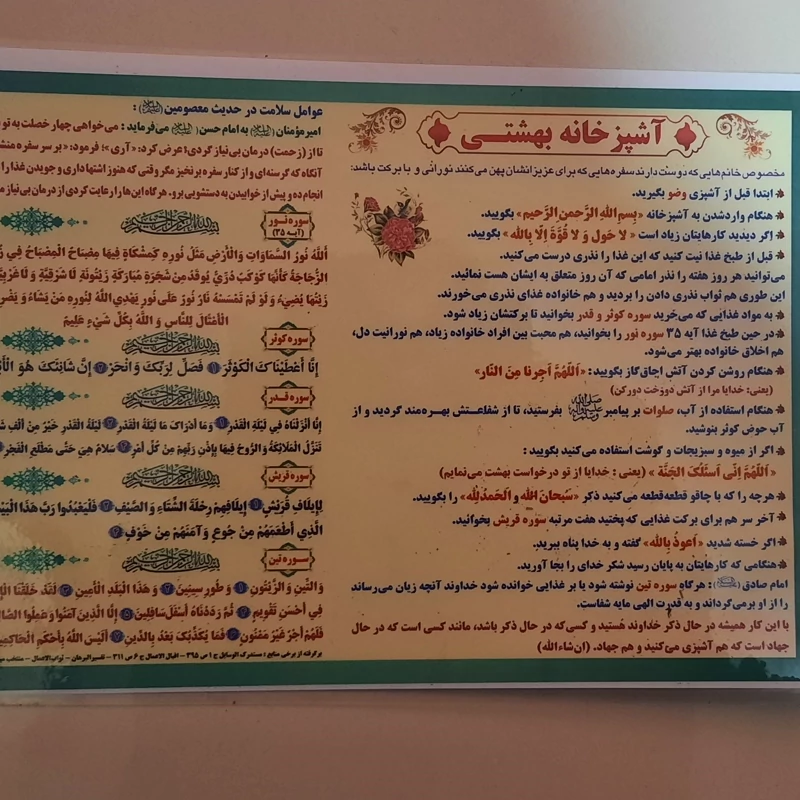 آشپزخانه بهشتـــی
مخصوص خانم‌هایی که دوست دارند سفره‌هایی که برای عزیزانشان پهن می‌کنند نورانی و با برکت باشد:
ابتدا قبل از آشپزی وضو بگیرید.
هنگام واردشدن به آشپزخانه «بِسمِ اللهِ الرَّحمنِ الرَّحیم» بگویید.
اگر دیدید کارهایتان زیاد است « لا حَول وَ لا قُوَّةَ اِلّا بِالله» بگویید.
قبل از طبخ غذا نیت کنید که این غذا را نذری درست می‌کنید.
می‌توانید هر روز هفته را نذر امامی که آن روز متعلق به ایشان هست نمائید.
این طوری هم ثواب نذری دادن را بردید و هم خانواده غذای نذری می‌خورند.
به مواد غذایی که می‌خرید سوره کوثر و قدر بخوانید تا برکتشان زیاد شود.
در حین طبخ غذا آیه ۳۵ سوره نور را بخوانید، هم محبت بین افراد خانواده زیاد، هم نورانیت دل،
هم اخلاق خانواده بهتر می‌شود.
هنگام روشن کردن آتش اجاق‌گاز بگویید: «اَللّهُمَّ اَجِرنا مِنَ النّار»
(یعنی: خدایا مرا از آتش دوزخت دورکن)
هنگام استفاده از آب، صلوات بر پیامبر ﷺ بفرستید، تا از شفاعـتش بهره‌مند گردید و از
آب حوض کوثر بنوشید.
اگر از میوه و سبزیجات و گوشت استفاده می‌کنید بگویید :
« اَللّهُمَّ اِنّی اَسئَلُکَ الجَنَّة » (یعنی : خدایا از تو درخواست بهشت می‌نمایم)
هرچه را که با چاقو قطعه‌قطعه می‌کنید ذکر «سُبحانَ الله و اَلحَمدُلِله» را بگویید.
آخر سر هم برای برکت غذایی که پختید هفت مرتبه سوره قریش بخوانید.
اگر خسته شدید «اَعوذُ بِالله» گفته و به خدا پناه ببرید.
هنگامی که کارهایتان به پایان رسید شکر خدای را بجا آورید.
امام صادق: هرگاه سوره تین نوشته شود یا بر غذایی خوانده شود خداوند آنچه زیان می‌رساند
را از او برمی‌گرداند و به قدرت الهی مایه شفاست.
با این کار همیشه در حال ذکر خداوند هستید و کسی‌که در حال ذکر باشد، مانند کسی است که در حال
جهاد است که هم آشپزی می‌کنید و هم جهاد. (ان‌شاءالله)
عوامل سلامت در حدیث معصومین :
امیرمؤمنان به امام حسن می‌فرماید : می‌خواهی چهار خصلت به تو
تا از (زحمت) درمان بی‌نیاز گردی؟ عرض کرد: «آری»؛ فرمود: «بر سر سفره
آنگاه که گرسنه‌ای و از کنار سفره برنخیز مگر وقتی که هنوز اشتهاداری و جویدن غذا را
انجام ده و پیش از خوابیدن به دستشویی برو. هرگاه این‌هارا رعایت کردی از درمان بی‌نیاز
سوره نور
(آیه ۳۵)
بِسْمِ اللهِ الرَّحْمنِ الرَّحِیمِ
اللهُ نُورُ السَّمَاوَاتِ وَالْأَرْضِ مَثَلُ نُورِهِ كَمِشْكَاةٍ فِيهَا مِصْبَاحٌ الْمِصْبَاحُ فِي
الزُّجَاجَةُ كَأَنَّهَا كَوْكَبٌ دُرِّيٌّ يُوقَدُ مِنْ شَجَرَةٍ مُبَارَكَةٍ زَيْتُونَةٍ لَا شَرْقِيَّةٍ وَلَا
زَيْتُهَا يُضِيءُ وَلَوْ لَمْ تَمْسَسْهُ نَارٌ نُورٌ عَلَى نُورٍ يَهْدِي اللَّهُ لِنُورِهِ مَنْ يَشَاءُ
الْأَمْثَالَ لِلنَّاسِ وَ اللَّهُ بِكُلِّ شَيْءٍ عَلِيمٌ
سوره کوثر
بِسْمِ اللهِ الرَّحْمنِ الرَّحِیمِ
إِنَّا أَعْطَيْنَاكَ الْكَوْثَرَ ۝ فَصَلِّ لِرَبِّكَ وَانْحَرْ ۝ إِنَّ شَانِئَكَ هُوَ
سوره قدر
بِسْمِ اللهِ الرَّحْمنِ الرَّحِیمِ
إِنَّا أَنْزَلْنَاهُ فِي لَيْلَةِ الْقَدْرِ ۝ وَمَا أَدْرَاكَ مَا لَيْلَةُ الْقَدْرِ ۝ لَيْلَةُ الْقَدْرِ خَيْرٌ مِنْ أَلْفِ
تَنَزَّلُ الْمَلَائِكَةُ وَالرُّوحُ فِيهَا بِإِذْنِ رَبِّهِمْ مِنْ كُلِّ أَمْرٍ ۝ سَلَامٌ هِيَ حَتَّى مَطْلَعِ الْفَجْرِ
سوره قریش
بِسْمِ اللهِ الرَّحْمنِ الرَّحِیمِ
لِإِيلَافِ قُرَيْشٍ ۝ إِيلَافِهِمْ رِحْلَةَ الشِّتَاءِ وَ الصَّيْفِ ۝ فَلْيَعْبُدُوا رَبَّ هَذَا
الَّذِي أَطْعَمَهُمْ مِنْ جُوعٍ وَآمَنَهُمْ مِنْ خَوْفٍ
سوره تین
بِسْمِ اللهِ الرَّحْمنِ الرَّحِیمِ
وَالتِّينِ وَ الزَّيْتُونِ ۝ وَ طُورِ سِينِينَ ۝ وَ هَذَا الْبَلَدِ الْأَمِينِ ۝ لَقَدْ خَلَقْنَا
فِي أَحْسَنِ تَقْوِيمٍ ۝ ثُمَّ رَدَدْنَاهُ أَسْفَلَ سَافِلِينَ ۝ إِلَّا الَّذِينَ آمَنُوا وَعَمِلُوا
فَلَهُمْ أَجْرٌ غَيْرُ مَمْنُونٍ ۝ فَمَا يُكَذِّبُكَ بَعْدُ بِالدِّينِ ۝ أَلَيْسَ اللَّهُ بِأَحْكَمِ
برگرفته از برخی منابع : مستدرک الوسایل ج۱ص ۳۹۵ - اقبال الاعمال ج ۶ ص ۳۱۱ - تفسیرالبرهان - ثواب‌الاعمال - منتخب